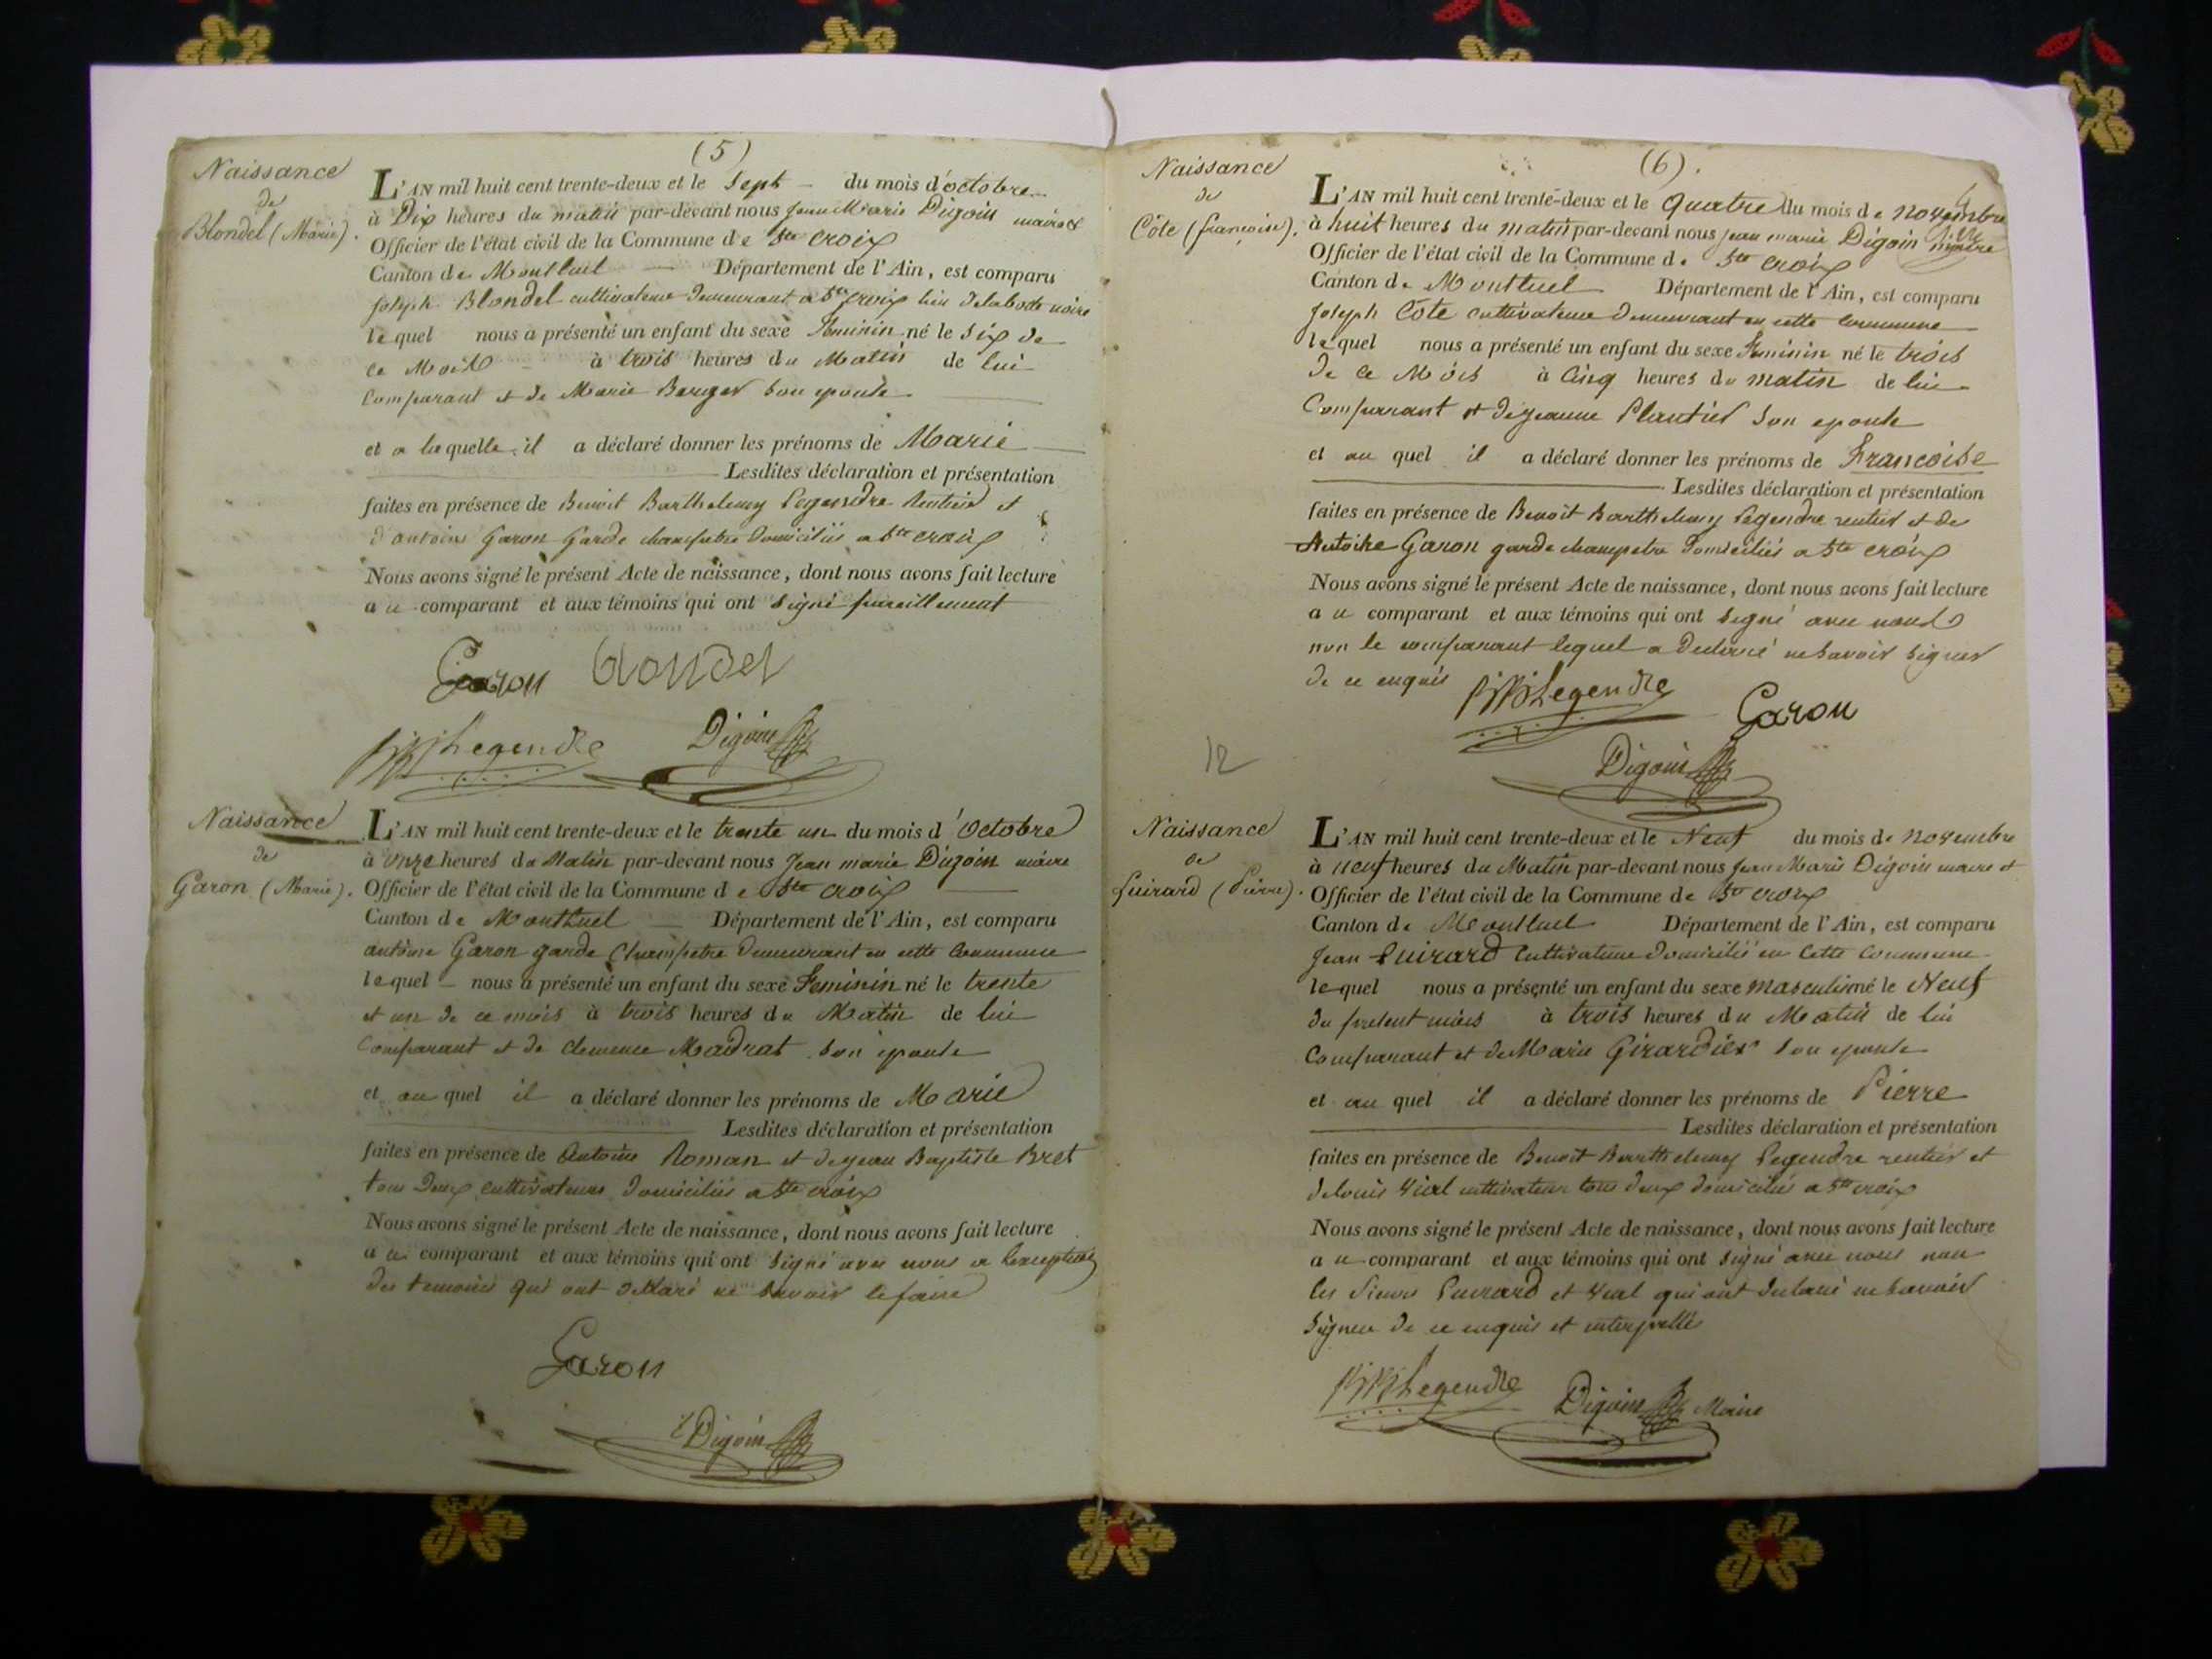 (5)
Naissance
de
Blondel (Marie).
L'AN mil huit cent trente-deux et le Sept du mois d'octobre
à Dix heures du matin par-devant nous Jean Marie Digoin maire et
Officier de l'état civil de la Commune de Ste Croix
Canton de Montluel Département de l'Ain, est comparu
Joseph Blondel cultivateur demeurant a Ste Croix lieu
lequel nous a présenté un enfant du sexe feminin né le Six de
ce Mois à trois heures du Matin de lui
Comparant et de Marie Berger son epouse
et a laquelle il a déclaré donner les prénoms de Marie
Lesdites déclaration et présentation
faites en présence de Benoit Barthelemy Legendre Rentier et
d'antoine Garon Garde champetre domiciliés a Ste croix
Nous avons signé le présent Acte de naissance, dont nous avons fait lecture
au comparant et aux témoins qui ont signé pareillement
Garon blondel
Legendre Digoin
Naissance
de
Garon (Marie).
L'AN mil huit cent trente-deux et le trente un du mois d'Octobre
à onze heures du Matin par-devant nous Jean marie Digoin maire
Officier de l'état civil de la Commune de Ste croix
Canton de Montluel Département de l'Ain, est comparu
antoine Garon garde Champetre demeurant en cette Commune
lequel nous a présenté un enfant du sexe Feminin né le trente
et un de ce mois à trois heures du Matin de lui
Comparant et de clemence Madrat son epouse
et au quel il a déclaré donner les prénoms de Marie
Lesdites déclaration et présentation
faites en présence de Antoine Roman et de jean Baptiste Bret
tous Deux cultivateurs domiciliés a Ste croix
Nous avons signé le présent Acte de naissance, dont nous avons fait lecture
au comparant et aux témoins qui ont signé avec nous a l'exception
des temoins qui ont declaré ne savoir le faire
Garon
Digoin
(6).
Naissance
de
Côte (françoise).
L'AN mil huit cent trente-deux et le Quatre du mois de novembre
à huit heures du matin par-devant nous jean marie Digoin maire
Officier de l'état civil de la Commune de Ste croix
Canton de Montluel Département de l'Ain, est comparu
Joseph Côte cultivateur demeurant en cette commune
lequel nous a présenté un enfant du sexe Feminin né le trois
de ce Mois à Cinq heures du matin de lui
Comparant et de jeanne Plantier son epouse
et au quel il a déclaré donner les prénoms de Francoise
Lesdites déclaration et présentation
faites en présence de Benoit Barthelemy Legendre rentier et de
Antoine Garon garde champetre domiciliés a Ste croix
Nous avons signé le présent Acte de naissance, dont nous avons fait lecture
au comparant et aux témoins qui ont signé avec nous
non le comparant lequel a declaré ne savoir signer
de ce enquis
Legendre Garon
Digoin
12
Naissance
de
Guirard (Pierre).
L'AN mil huit cent trente-deux et le Neuf du mois de novembre
à neuf heures du Matin par-devant nous Jean Marie Digoin maire et
Officier de l'état civil de la Commune de Ste croix
Canton de Montluel Département de l'Ain, est comparu
Jean Guirard Cultivateur domicilié en cette commune
lequel nous a présenté un enfant du sexe masculin né le Neuf
du present mois à trois heures du Matin de lui
Comparant et de Marie Girardier son epouse
et au quel il a déclaré donner les prénoms de Pierre
Lesdites déclaration et présentation
faites en présence de Benoit Barthelemy Legendre rentier et
de louis Vial cultivateur tous deux domiciliés a Ste croix
Nous avons signé le présent Acte de naissance, dont nous avons fait lecture
au comparant et aux témoins qui ont signé avec nous non
les Sieurs Guirard et Vial qui ont declaré ne savoir
signer de ce enquis et interpellés
Legendre Digoin Maire